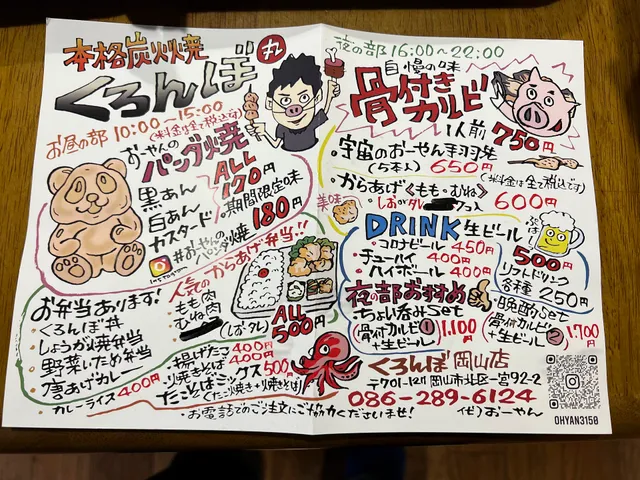 本格炭火焼
くろんぼ 丸
お昼の部 10:00〜15:00
(※料金は全て税込です)
おーやんの
パンダ焼
黒あん
白あん
カスタード
ALL
170円
期間限定味
180円
Instagram
#おーやんの
パンダ焼
お弁当あります!
・くろんぼ丼
・しょうが焼弁当
・野菜いため弁当
・唐あげカレー
・カレーライス 400円
人気のからあげ弁当!!
・もも肉
・むね肉
(しお・タレ)
ALL
500円
・揚げたこ 400円
・焼きそば 400円
・たことばミックス 500円
(たこ焼き+焼きそば)
・お電話でのご注文にご協力くださいませ!
夜の部 16:00〜22:00
自慢の味
骨付き
カルビ
1人前 750円
・宇宙のおーやん手羽先
(5本入) 650円
(※料金は全て税込です)
・からあげ<もも・むね>
600円
美味
DRINK
・コロナビール 450円
・チューハイ 400円
・ハイボール 400円
生ビール
500円
ソフトドリンク
各種 250円
夜の部おすすめ
・ちょい呑みSet
(骨付カルビ①
+生ビール)
1,100円
・晩酌Set
(骨付カルビ②
+生ビール)
1,700円
くろんぼ 岡山店
〒701-1211 岡山市北区一宮92-2
086-289-6124
(ぜ)おーやん
OHYAN3150